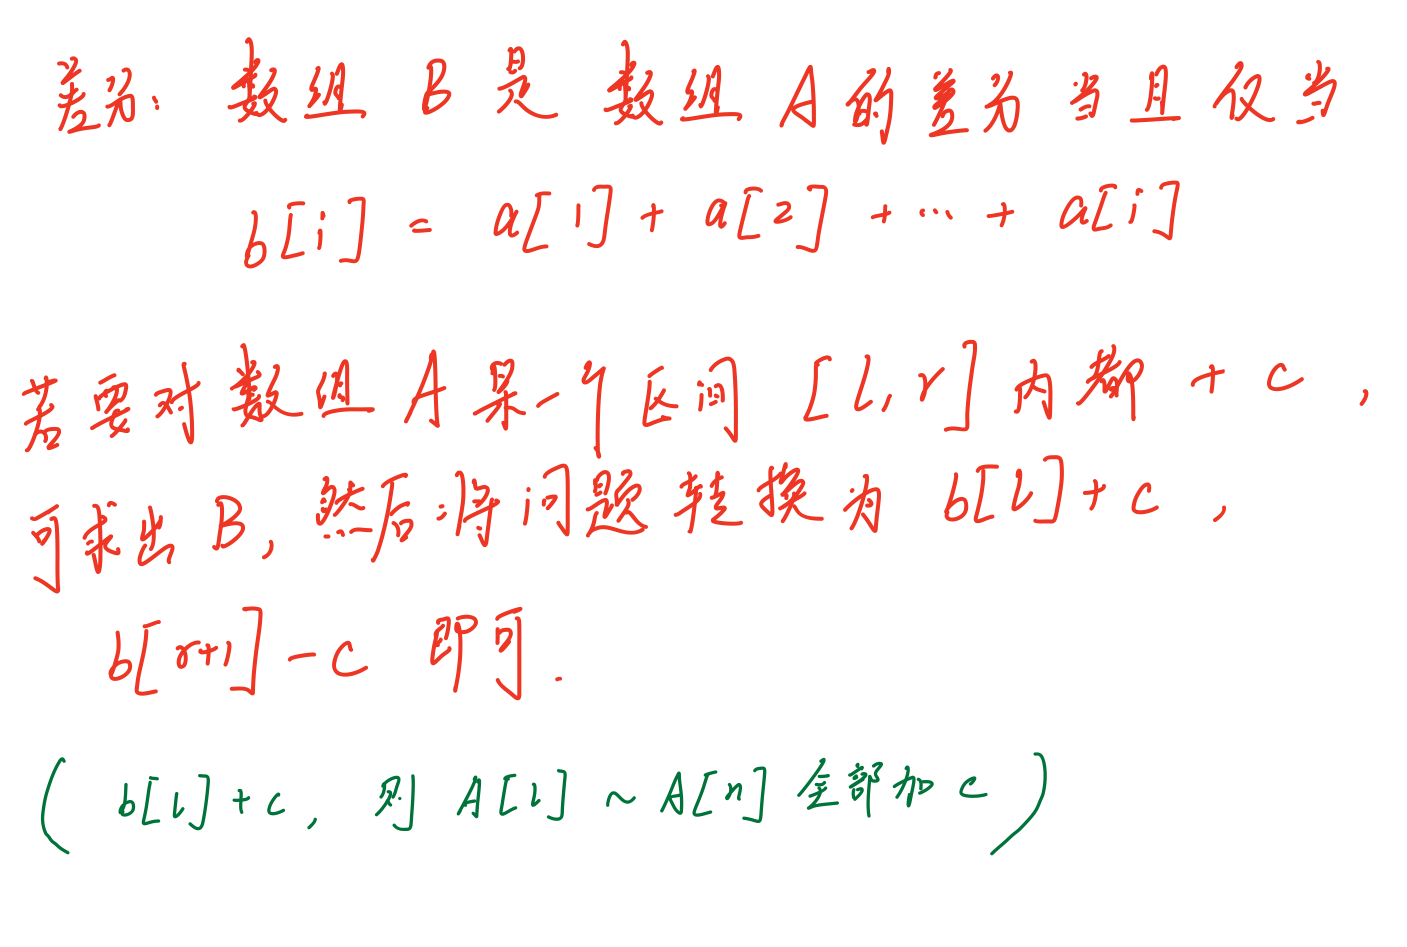 差分: 数组 B 是 数组 A 的差分当且仅当
b[i] = a[1] + a[2] + ... + a[i]
若要对数组 A 某一个区间 [l,r] 内都 + c ,
可求出 B, 然后将问题转换为 b[l] + c ,
b[r+1] - c 即可.
( b[l] + c, 则 A[l] ~ A[n] 全部加 c )